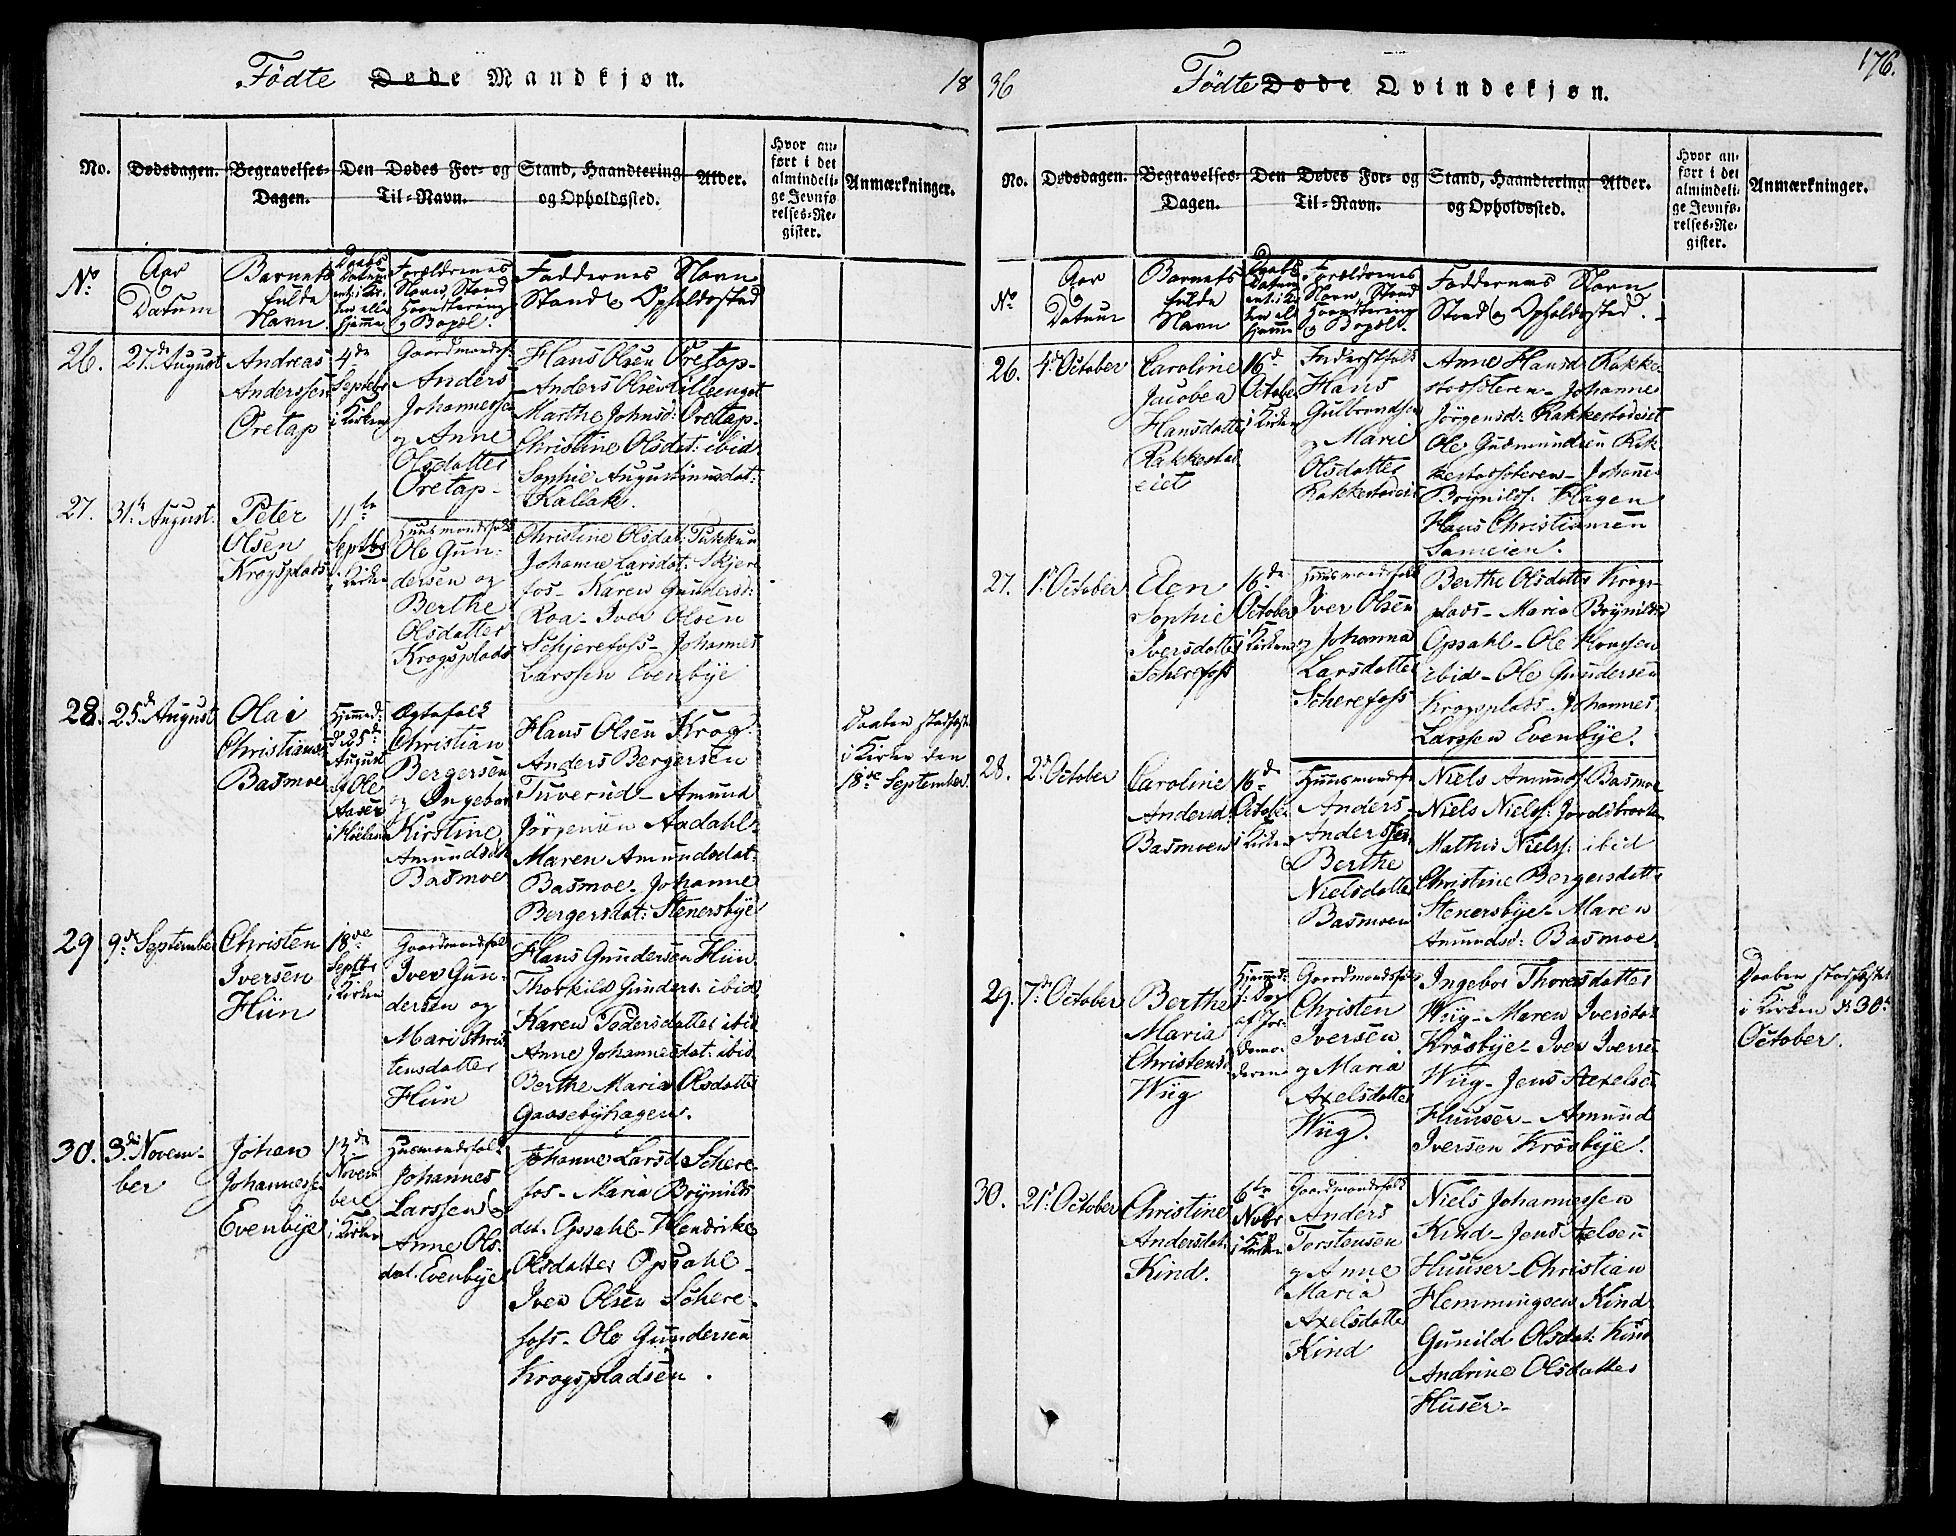 Födte Døde Mandkjøn.
18
No.
Dødsdagen.
Begravelses-
Dagen.
Den Dødes For- og
Til-Navn.
Stand, Haandtering
og Opholdssted.
Alder.
Hvor an-
ført i det
almindeli-
ge Jevnfø-
relses-Re-
gister.
Anmærkninger.
No
Aar
&
Datum
Barnets
fulde
Navn
Daabs
Datum
ent: i Kir
ken eller
hjemme
Forældrenes
Navn, Stand
Haandtering
og Bopæl.
Faddernes Navn
Stand & Opholdssted
26.
27de August
Andreas
Anderssen
Oretap
4de
Septbr
i Kirken
Gaardmandsf:
Anders
Johannessen
og Anne
Olsdatter
Oretap-
Hans Olsen Oretap-
Anders Olsen Ulleenget
Marthe Johnsd: Oretap-
Christine Olsdat: ibid
Sophie Augustinusdat:
Kallak.
27.
31te August.
Peter
Olsen
Krogsplads
11te
Septbr
i Kirken
Huusmandsfolk
Ole Gun-
dersen og
Berthe
Olsdatter
Krogsplads
Christine Olsdat: Tukkun
Johanne Larsdat: Skjere
fos- Karen Gundersd:
Roa- Iver Olsen
Schjerefoss- Johannes
Larssen Evenbye
28.
25de August
Olai
Christians:
Basmoe
Hjemmed:
d: 25de
August
af Ole
Aasen
i Höeland
Ægtefolk
Christian
Bergersen
og Ingebor
Kirstine
Amundsdat
Basmoe
Hans Olsen Krog.
Anders Bergersen
Tuverud- Amund
Jörgensen Aadahl-
Maren Amundsdat:
Basmoe- Johanne
Bergersdat: Stenersbye
Daaben stadfæstet
i Kirken den
18de September.
29
9de September
Christen
Iversen
Hün
18de
Septbr
i Kirken
Gaardmandsfolk
Iver Gun-
dersen og
Mari Chris
tensdatter
Hün
Hans Gundersen Hün
Thorkild Gunders: ibid
Karen Pedersdatter ibid
Anne Johannesdat: ibid
Berthe Maria Olsdatter
Gaasebyhagen.
30.
3de Novem-
ber
Johan
Johannessen
Evenbye
13de
Novem
ber
i Kirken
Husmandsfolk
Johannes
Larssen &
Anne Ols-
dat. Evenbye
Johanne Larsd Schere-
fos- Maria Brynilds
dat. Opsahl- Hendrike
Olsdatter Opsahl-
Iver Olsen Schere-
foss- Ole Gundersen
Krogspladsen.
36
Födte Døde Qvindekjøn.
176.
No.
Dødsdagen.
Begravelses-
Dagen.
Den Dødes For- og
Til-Navn.
Stand, Haandtering
og Opholdssted.
Alder.
Hvor an-
ført i det
almindeli-
ge Jevnfø-
relses-Re-
gister.
Anmærkninger.
No
Aar
&
Datum
Barnets
fulde
Navn
Daabs
Datum
ent: i Kir
ken el
hjemme
Forældrenes
Navn, Stand
Haandtering
og Bopæl-
Faddernes Navn
Stand & Opholdssted.
26.
4de October
Caroline
Jacobea
Hansdatter
Rakkestad
eiet
16de
October
i Kirken
Inderstfolk
Hans
Gulbrandsen
og Marie
Olsdatter
Rakkestadeiet
Anne Hansd Rakke-
stadsoteren- Johanne
Jörgensd: Rakkestadeiet
Ole Gudmundsen Rak-
kestadsoteren- Johannes
Brynilds. Hagen
Hans Christiansen
Sameien.
27.
1ste October
Elen
Sophie
Iversdatter
Scherefoss
16de
October
i Kirken
Huusmandsfolk
Iver Olsen
og Johanna
Larsdatter
Scherefoss
Berthe Olsdatter Krogs-
plads- Maria Brynilds
Opsahl- Ole Hanssen
ibid- Ole Gundersen
Krogsplads. Johannes
Larssen Evenbye.
28.
2de October
Caroline
Andersd:
Basmoen
16de
October
i Kirken
Huusmandsf
Anders
Anderssen
& Berthe
Nielsdatter
Basmoen
Niels Amunds Basmoe
Niels Niels: Jordsbraaten
Mathis Niels: ibid
Christine Bergersdatter
Stenersbye- Maren
Amundsd: Basmoe-
29.
7de October
Berthe
Maria
Christensd
Wüg
Hjemmed:
af Jor
demo-
deren
Gaardmandsfolk
Christen
Iversen
og Maria
Axelsdatter
Wüg.
Ingebor Thoresdatter
Wüg- Maren Iversdat
Krösbye- Iver Iversen
Wüg- Jens Axelsen
Huuser- Amund
Iversen Krösbye.
Daaben stadfæstet
i Kirken d: 30te
October.
30.
21de October
Christine
Andersdat:
Kind.
6te
Nobr
i Kirken
Gaardmandsfolk
Anders
Torstensen
og Anne
Maria
Axelsdatter
Kind
Niels Johannessen
Kind- Jens Axelsen
Huuser- Christian
Hemmingsen Kind
Gunild Olsdat: Kind
Andrine Olsdatter
Huser-